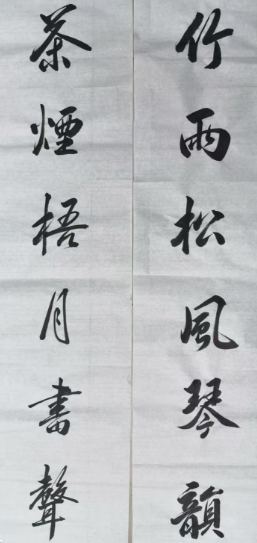 竹雨松風琴韻
茶煙梧月書聲